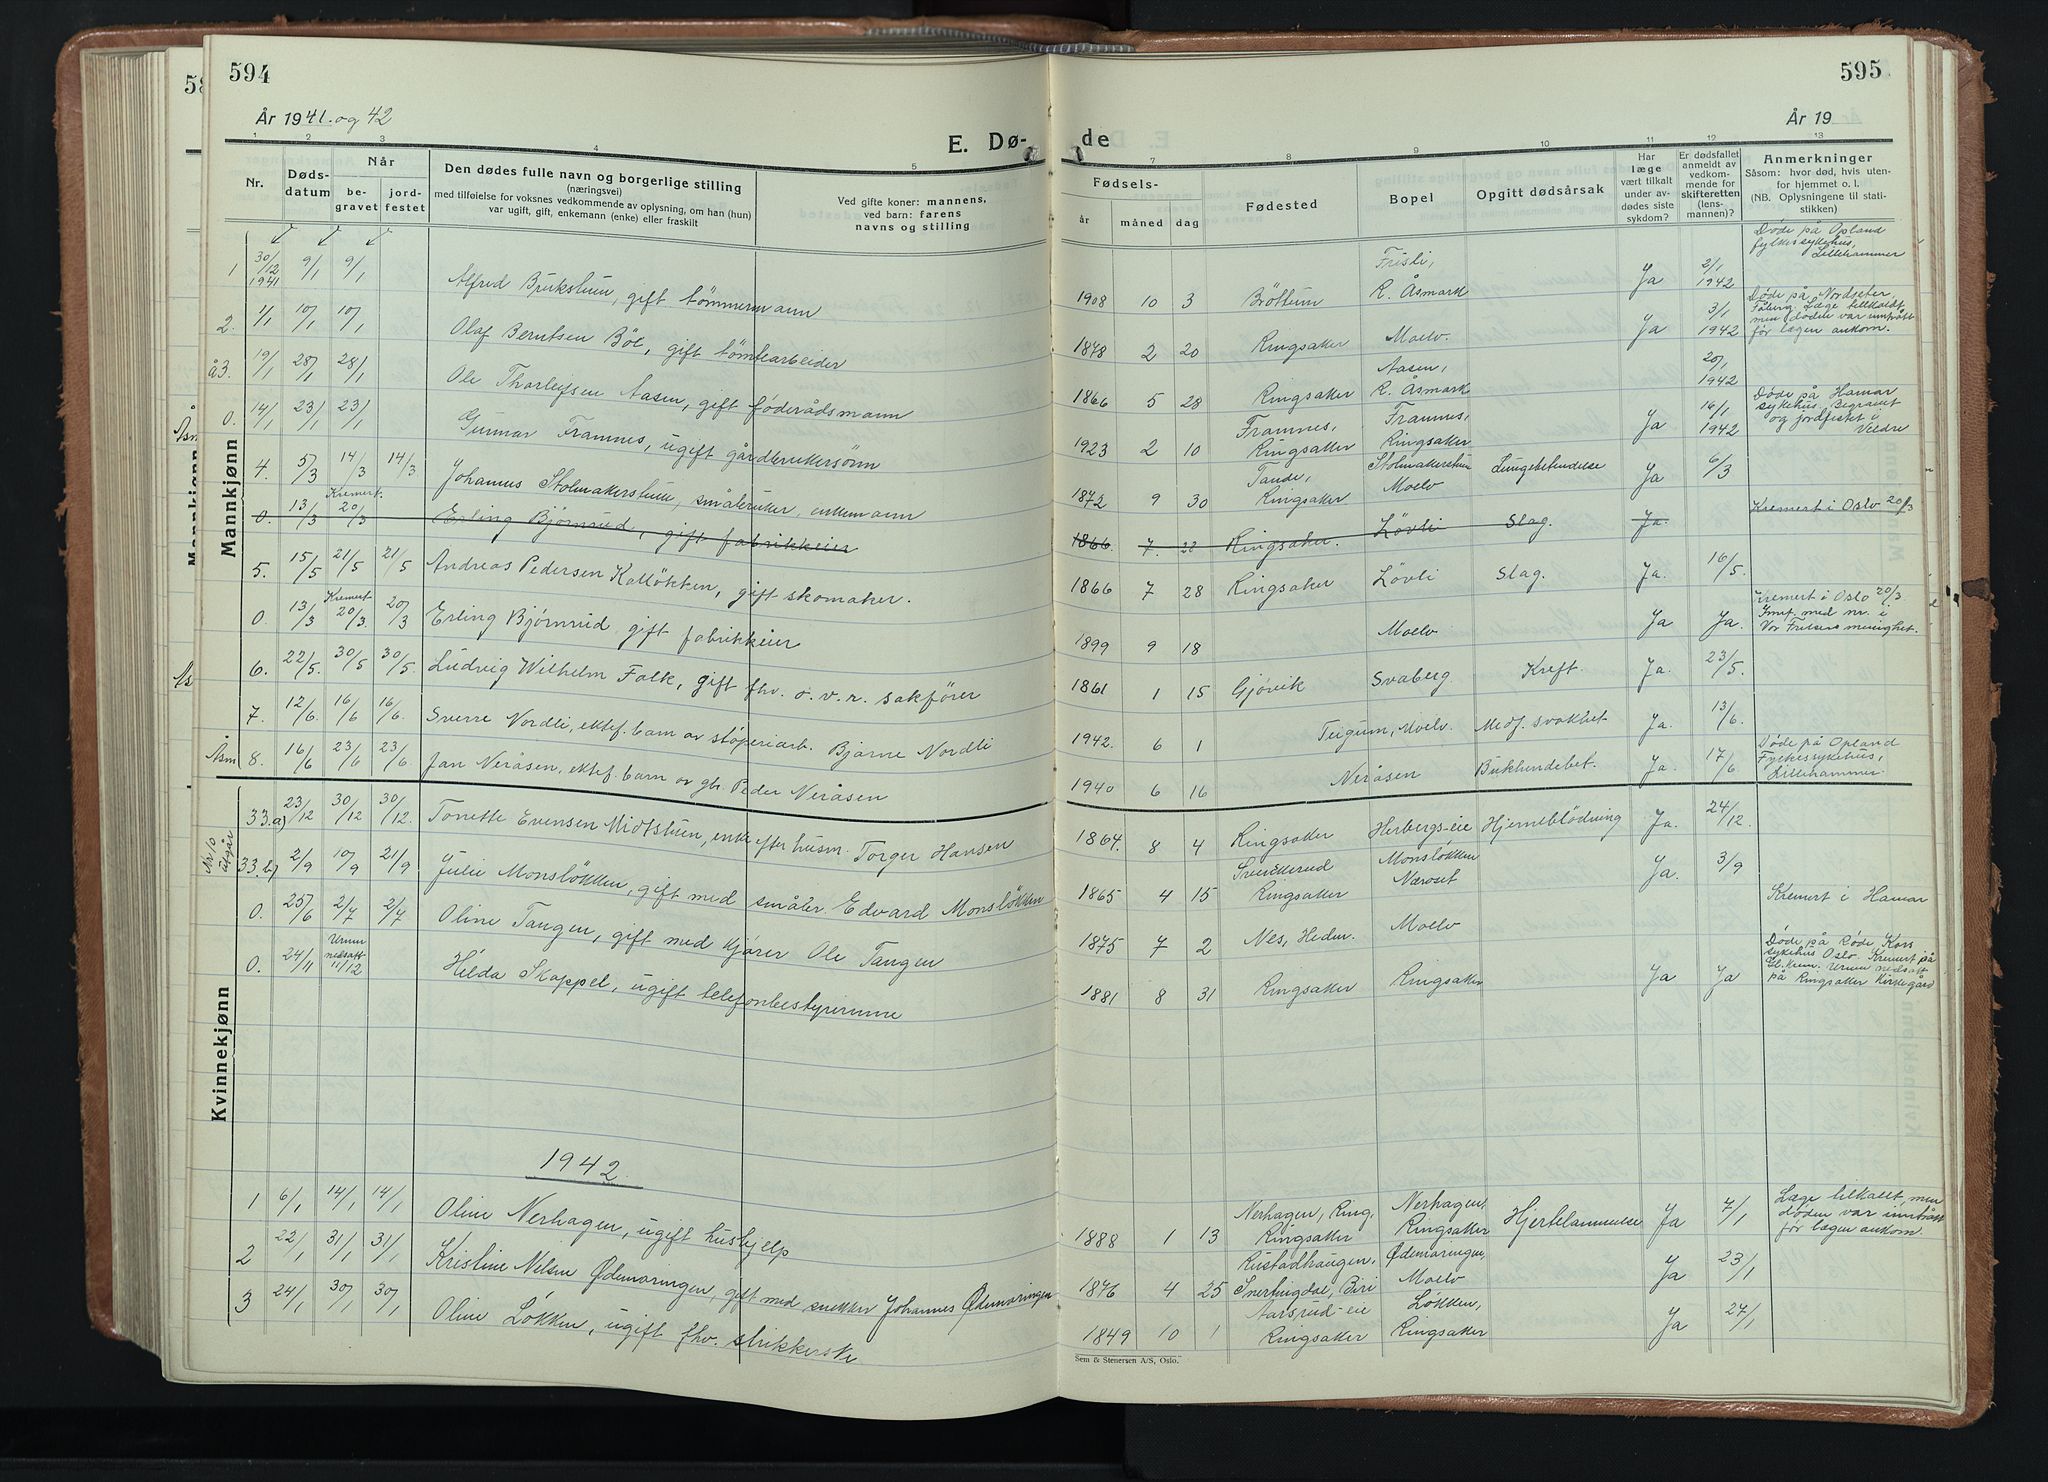 594
År 1941 og 42
E. Dø-
1 2 3 4 5
Nr.
Døds-
datum
Når
be-
gravet
jord-
festet
Den dødes fulle navn og borgerlige stilling
(næringsvei)
med tilføielse for voksnes vedkommende av oplysning, om han (hun)
var ugift, gift, enkemann (enke) eller fraskilt
Ved gifte koner: mannens,
ved barn: farens
navns og stilling
Mannkjønn
1 30/12 1941 9/1 9/1 Alfred Brukstuen, gift tömmermann
2. 1/1 10/1 10/1 Olaf Berntsen Böe, gift tömtearbeider
å3. 19/1 28/1 28/1 Ole Thorleifsen Aasen, gift föderådsmann
0. 14/1 23/1 23/1 Gunnar Framnes, ugift gårdbrukersönn
4. 5/3 14/3 14/3 Johannes Stolmakerstuen, småbruker, enkemann
0. 13/3 Kremert 20/3 Erling Bjørnrud, gift fabrikkeier
5. 15/5 21/5 21/5 Andreas Pedersen Kalløkken, gift skomaker.
0. 13/3 Kremert 20/3. 20/3 Erling Bjørnrud gift fabrikkeier
6. 22/5. 30/5 30/5. Ludvig Wilhelm Falk, gift fhv. o.v.r. sakfører
7. 12/6. 16/6 16/6. Sverre Nordli, ektef. barn av støperiarb. Bjarne Nordli
Åsm 8. 16/6 23/6 23/6. Jan Neråsen, ektef. barn av gbr. Peder Neråsen
Kvinnekjønn
33.a) 23/12 30/12 30/12. Tonette Evensen Midtstuen, enke efter husm. Torger Hansen
Nr. 10 utgår
33.b) 2/9 10/9 21/9 Julie Monsløkken, gift med småbr. Edvard Monsløkken
0. 25/6 2/7 2/7 Oline Tangen, gift med kjører Ole Tangen
0. 24/11 Urnen nedsatt 11/12 Hilda Skappel, ugift telefonbestyrerinne
1942
1 6/1 14/1 14/1 Oline Nerhagen, ugift hushjelp
2 22/1 31/1 31/1 Kristine Nilsen Ødemoringen, gift med snekker Johannes Ødemoringen
3 24/1 30/1 30/1 Oline Løkken, ugift fhv. strikkerske
595
År 19
de
7 8 9 10 11 12 13
Fødsels-
år måned dag
Fødested
Bopel
Opgitt dødsårsak
Har
læge
vært tilkalt
under av-
dødes siste
sykdom?
Er dødsfallet
anmeldt av
vedkom-
mende for
skifteretten
(lens-
mannen)?
Anmerkninger
Såsom: hvor død, hvis uten-
for hjemmet o. l.
(NB. Oplysningene til stati-
stikken)
1908 10 3 Bröttum Frisli, R. Åsmark Ja 2/1 1942 Døde på Opland fylkessykehus, Lillehammer
1848 2 20 Ringsaker Moelv. Ja 3/1 1942 Døde på Nordseter Fåberg. Læge tilkaldt men döden var inntrått før lægen ankom.
1866 5 28 Ringsaker Aasen, R. Åsmark 20/1 1942
1923 2 10 Framnes, Ringsaker Framnes, Ringsaker Ja 16/1 1942 Døde på Hamar sykehus. Begravet og jordfestet i Veldre
1872 9 30 Tande, Ringsaker Stolmakerstuen Moelv Lungebetendelse Ja 6/3
1866 7. 28 Ringsaker. Løvli Slag. Ja. Kremert i Oslo 20/3
1866 7 28 Ringsaker Løvli Slag. Ja. 16/5.
1899 9 18 Moelv Ja Ja. Kremert i Oslo 20/3. Innf. med nr. i Vor Frelsers menighet.
1861 1 15 Gjøvik Svaberg Kreft. Ja. 23/5.
1942. 6 1 Teigum, Moelv. Medf. svakhet Ja. 13/6.
1940 6 16 Neråsen Bukhindebet. Ja. 17/6 Døde på Opland Fylkessykehus, Lillehammer.
1864. 8 4 Ringsaker Herbergs-eie Hjerneblödning Ja. 24/12.
1865 4 15 Ringsaker Monsløkken Næroset Ja. 3/9
1875 7 2 Nes, Hedm. Moelv Kremert i Hamar
1881 8 31 Ringsaker Ringsaker Ja Ja Døde på Røde Kors sykehus Oslo. Kremert på Gl. krem. Urnen nedsatt på Ringsaker kirkegård
1888 1 13 Nerhagen, Ring, Ringsaker Nerhagen, Ringsaker Hjertelammelse Ja 7/1 Læge tilkallt, men döden var inntrått för lægen ankom.
1876 4 25 Rustadhaugen, Snertingdal, Biri Ødemoringen, Moelv Ja 23/1
1849 10 1 Aarsrud-eie Ringsaker Løkken, Ringsaker Ja 27/1
Sem & Stenersen A/S, Oslo.